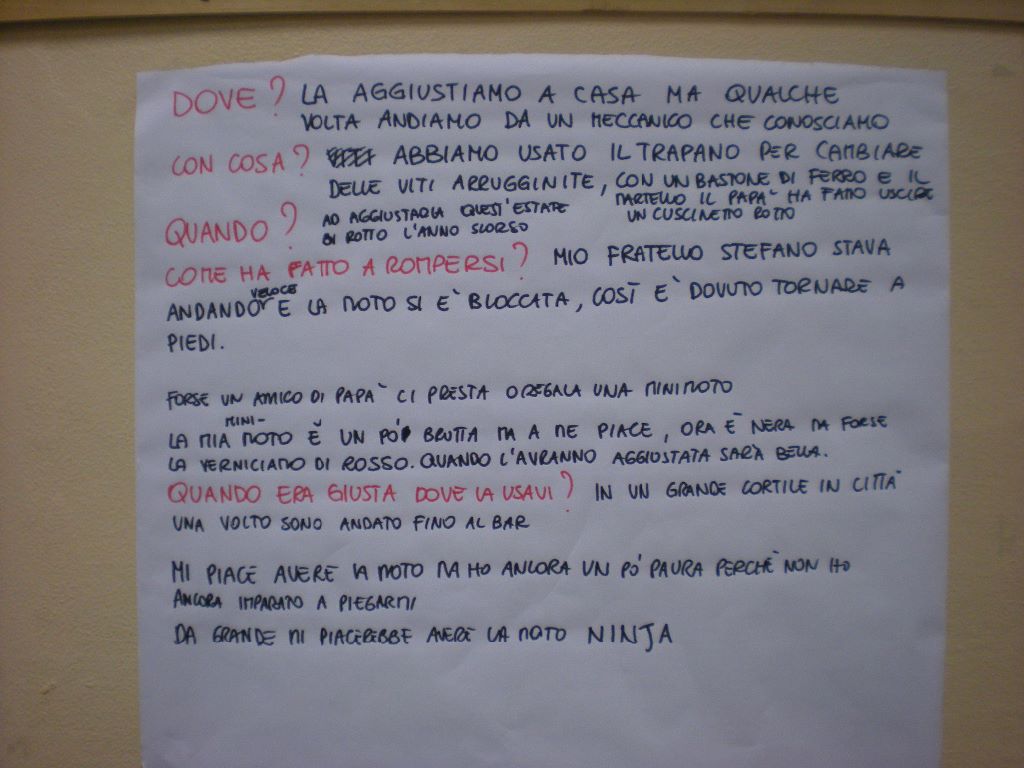 DOVE? LA AGGIUSTIAMO A CASA MA QUALCHE
VOLTA ANDIAMO DA UN MECCANICO CHE CONOSCIAMO
CON COSA? ABBIAMO USATO IL TRAPANO PER CAMBIARE
DELLE VITI ARRUGGINITE, CON UN BASTONE DI FERRO E IL
MARTELLO IL PAPA` HA FATTO USCIRE
UN CUSCINETTO ROTTO
QUANDO? AD AGGIUSTARLA QUEST'ESTATE
SI ROTTO L'ANNO SCORSO
COME HA FATTO A ROMPERSI? MIO FRATELLO STEFANO STAVA
ANDANDO VELOCE E LA MOTO SI E` BLOCCATA, COSÌ E` DOVUTO TORNARE A
PIEDI.
FORSE UN AMICO DI PAPA` CI PRESTA O REGALA UNA MINIMOTO
LA MIA MINI-MOTO È UN PO' BRUTTA MA A ME PIACE, ORA È NERA MA FORSE
LA VERNICIAMO DI ROSSO. QUANDO L'AVRANNO AGGIUSTATA SARÀ BELLA.
QUANDO ERA GIUSTA DOVE LA USAVI? IN UN GRANDE CORTILE IN CITTA`
UNA VOLTO SONO ANDATO FINO AL BAR
MI PIACE AVERE LA MOTO MA HO ANCORA UN PO' PAURA PERCHÈ NON HO
ANCORA IMPARATO A PIEGARMI
DA GRANDE MI PIACEREBBE AVERE LA MOTO NINJA